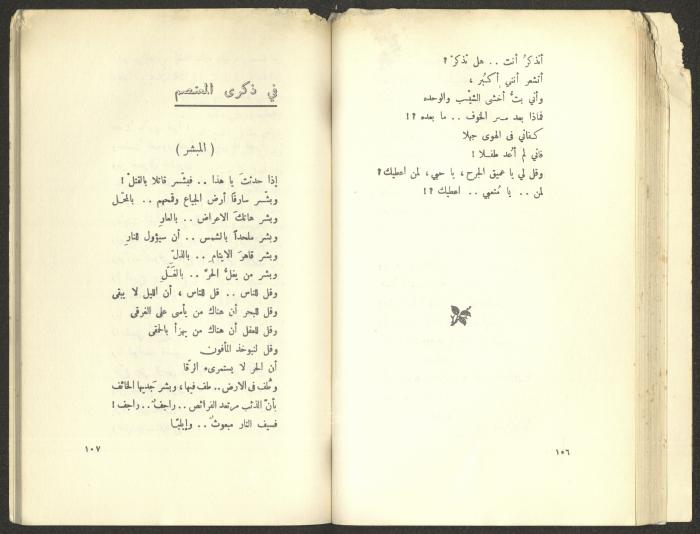 أتذكرُ أنت .. هل تذكرْ ؟
أتشعر أنني أكبُر ،
وأني بتُّ أخشى الشيْب والوحده
فماذا بعد سر الخوف .. ما بعده ؟!
كفاني في الهوى جهلا
فاني لم أعد طفلا !
وقل لي يا عميق الجرح، يا حبي، لمن اعطيك ؟
لمن .. يا مُتعبي .. اعطيك ؟!
١٠٦
في ذكرى المعتصم
( المبشر )
إذا حدثتَ يا هذا .. فبشّر قاتلا بالقتلْ !
وبشّر سارقاً أرض الجياع وقمحهم .. بالمحْل
وبشر هاتكَ الاعراض .. بالعارِ
وبشر ملحداً بالشمس .. أن سيؤول للنارِ
وبشر قاهرَ الايتامِ .. بالذلِّ
وبشر من يغلُّ الحرَّ .. بالغَلِّ
وقل للناس .. قل للناس ، أن الليل لا يبقى
وقل للبحر أن هناك من يأسى على الغرقى
وقل للعقل أن هناك من يهزأ بالحمقى
وقل لنبوخذ المأفون
أن الحر لا يستمرىء الرقا
وطُف في الارض .. طف فيها، وبشر جديبها الخائف
بأنّ الذئب مرتعد الفرائص .. راجفٌ .. راجف !
فسيف النار مبعوثٌ .. وإيلينا
١٠٧